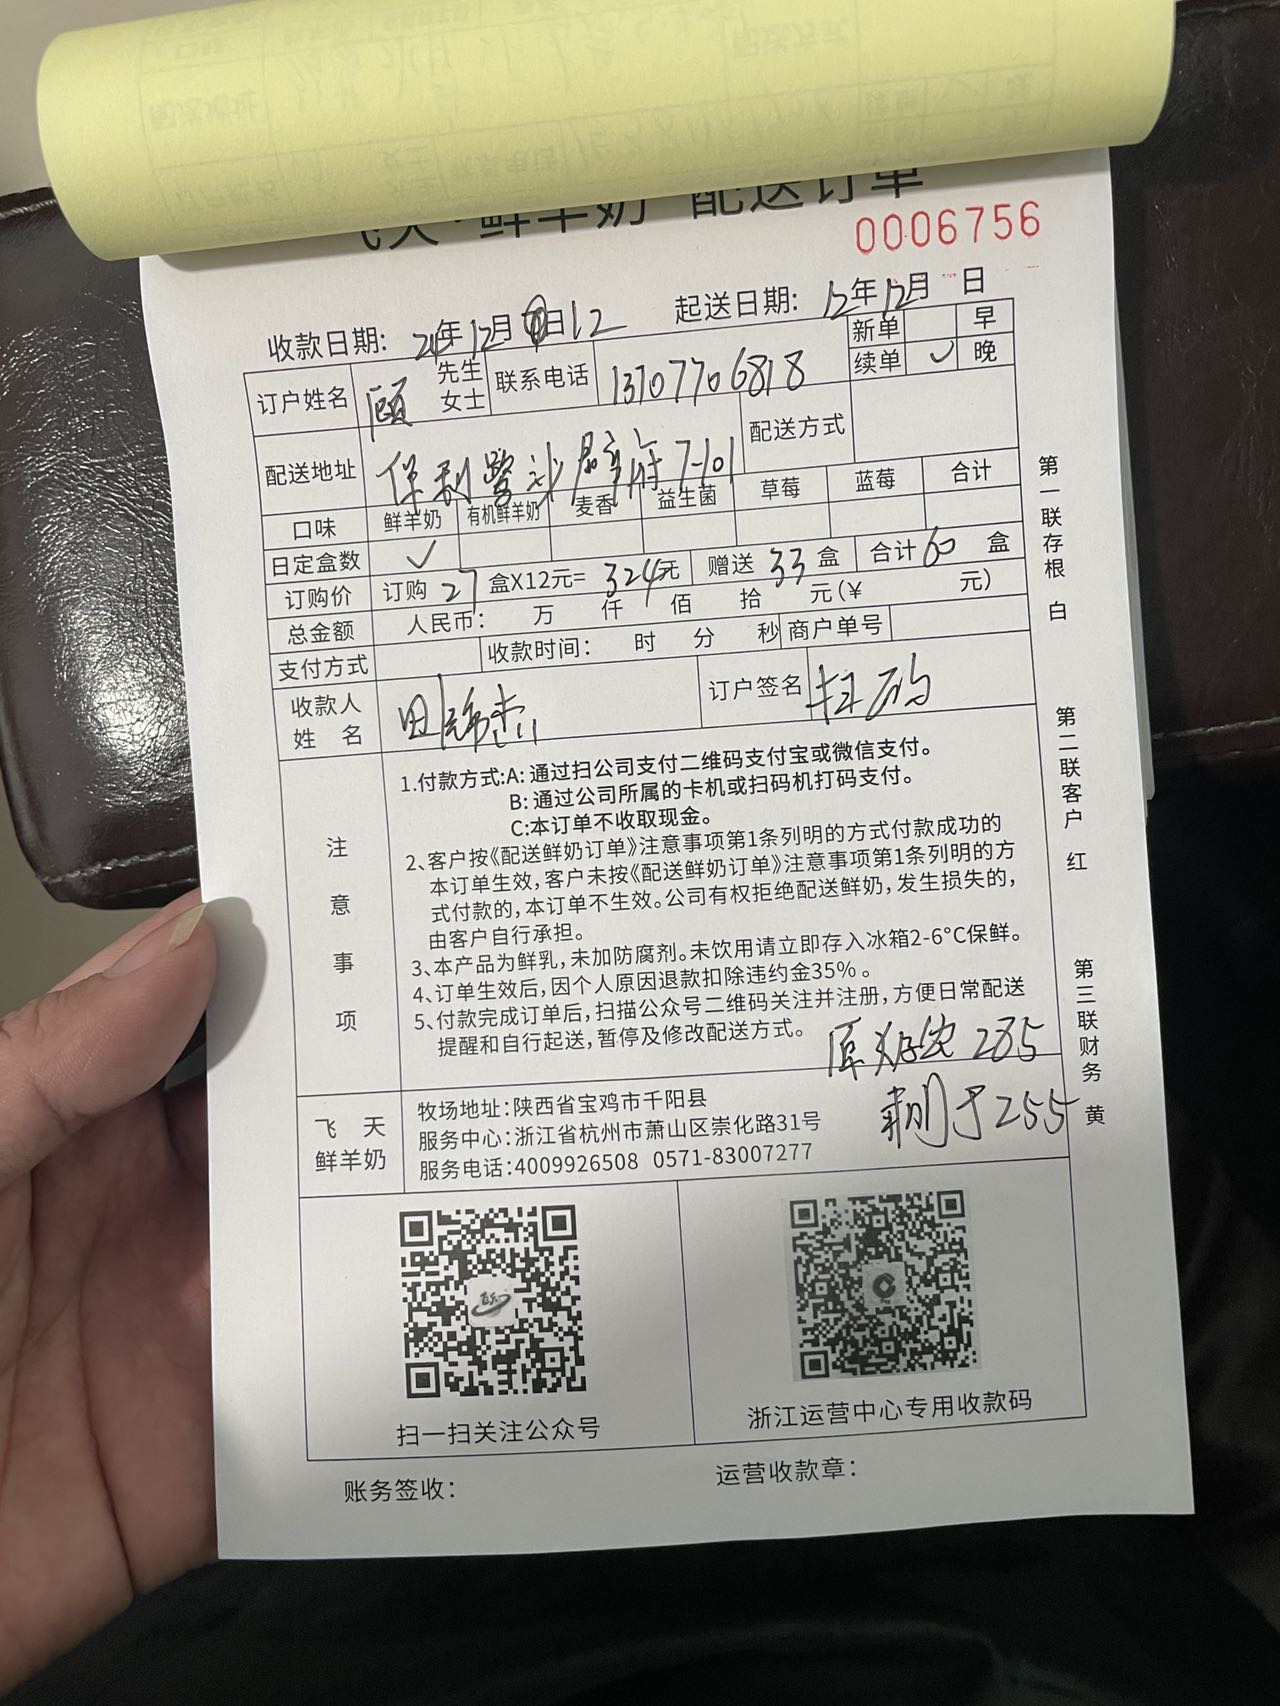 飞天·鲜羊奶 配送订单
0006756
收款日期: 24年12月日12 起送日期: 12年12月 日
新单 早
续单 ✓ 晚
订户姓名 顾 先生 女士 联系电话 13707706818
配送地址 保利鹭沙 府7-101 配送方式
口味 鲜羊奶 有机鲜羊奶 麦香 益生菌 草莓 蓝莓 合计
日定盒数 ✓
订购价 订购 27 盒X12元= 324元 赠送 33 盒 合计 60 盒
总金额 人民币: 万 仟 佰 拾 元(¥ 元)
支付方式 收款时间: 时 分 秒 商户单号
收款人姓名 田 杰 订户签名 扫码
注意事项
1.付款方式:A: 通过扫公司支付二维码支付宝或微信支付。
B: 通过公司所属的卡机或扫码机打码支付。
C:本订单不收取现金。
2、客户按《配送鲜奶订单》注意事项第1条列明的方式付款成功的
本订单生效, 客户未按《配送鲜奶订单》注意事项第1条列明的方
式付款的, 本订单不生效。公司有权拒绝配送鲜奶, 发生损失的,
由客户自行承担。
3、本产品为鲜乳, 未加防腐剂。未饮用请立即存入冰箱2-6°C保鲜。
4、订单生效后, 因个人原因退款扣除违约金35% 。
5、付款完成订单后, 扫描公众号二维码关注并注册, 方便日常配送
提醒和自行起送, 暂停及修改配送方式。
原 285
255
飞天鲜羊奶
牧场地址:陕西省宝鸡市千阳县
服务中心:浙江省杭州市萧山区崇化路31号
服务电话:4009926508 0571-83007277
扫一扫关注公众号
浙江运营中心专用收款码
账务签收:
运营收款章:
第一联存根 白
第二联客户 红
第三联财务 黄